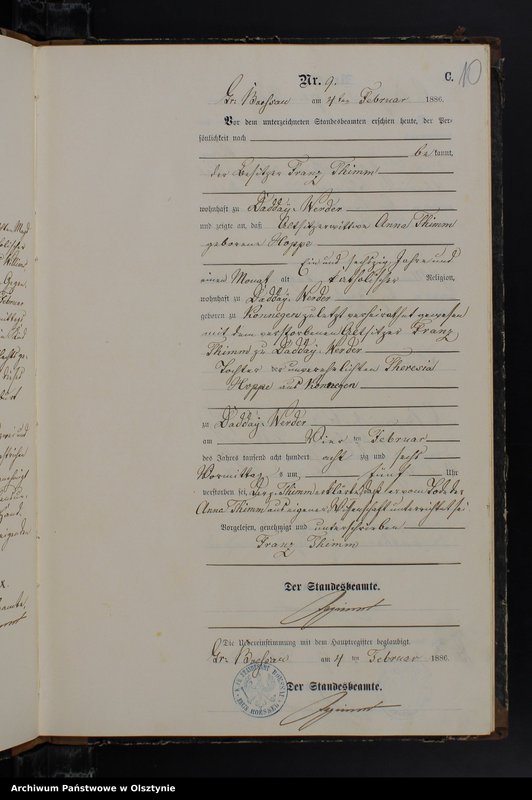 Nr. 9.
C. 10
Gr. Boessau am 4ten Februar 1886.
Vor dem unterzeichneten Standesbeamten erschien heute, der Per-
sönlichkeit nach
be kannt,
der Besitzer Franz Thimm
wohnhaft zu Dadday-Werder
und zeigte an, daß Anna Thimm
geborene Hoppe
Ein und sechzig Jahre und
einen Monat alt katholischer Religion,
wohnhaft zu Dadday-Werder
geboren zu Konnegen zuletzt verheirathet gewesen
mit dem verstorbenen Franz
Thimm zu Dadday-Werder
Tochter der unverehelichten Theresia
Hoppe aus Konnegen
zu Dadday-Werder
am Vier ten Februar
des Jahres tausend acht hundert acht zig und sechs
Vormittags um fünf Uhr
verstorben sei, Thimm erklärte, daß er vom Tode der
Anna Thimm aus eigener Wissenschaft unterrichtet sei
Vorgelesen, genehmigt und unterschrieben
Franz Thimm
Der Standesbeamte.
Die Uebereinstimmung mit dem Hauptregister beglaubigt.
Gr. Boessau am 4 ten Februar 1886.
Der Standesbeamte.
Archiwum Państwowe w Olsztynie